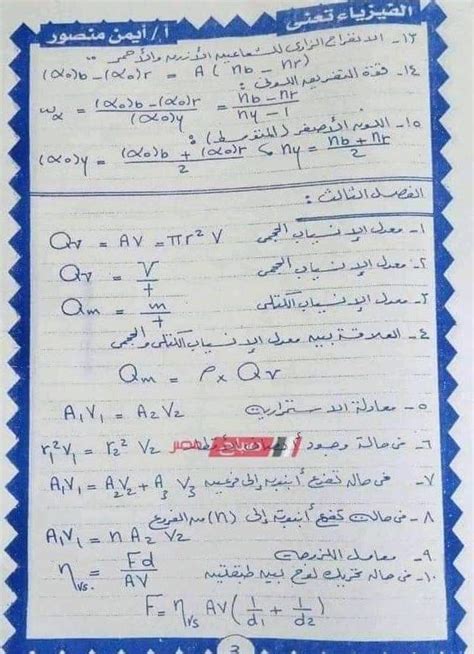 الفيزياء تعنى
أ / أيمن منصور
١٣ـ الانفراج الزاوى للشعاعين الأزرق والأحمر :
(αo)b - (αo)r = A ( nb - nr )
١٤ـ قوة التفريق اللونى :
ωα = (αo)b - (αo)r / (αo)y = nb - nr / ny - 1
١٥ـ اللون الأصفر (المتوسط) :
(αo)y = (αo)b + (αo)r / 2 ، ny = nb + nr / 2
الفصل الثالث :
١ـ معدل الإنسياب الحجمى Qv = AV = πr² V
٢ـ معدل الإنسياب الحجمى Qv = V / t
٣ـ معدل الإنسياب الكتلى Qm = m / t
٤ـ العلاقة بين معدل الإنسياب الكتلى والحجمى
Qm = ρ x Qv
٥ـ معادلة الاستمرارية A1V1 = A2V2
٦ـ فى حالة وجود r1² V1 = r2² V2
٧ـ فى حالة تفرع أنبوبة إلى فرعين A1V1 = A2V2 + A3V3
٨ـ فى حالة تفرع أنبوبة إلى (n) من الفروع
A1V1 = n A2 V2
٩ـ معامل اللزوجة ηvs = Fd / AV
١٠ـ فى حالة تحريك لوح بين طبقتين
F = ηvs AV ( 1/d1 + 1/d2 )
3